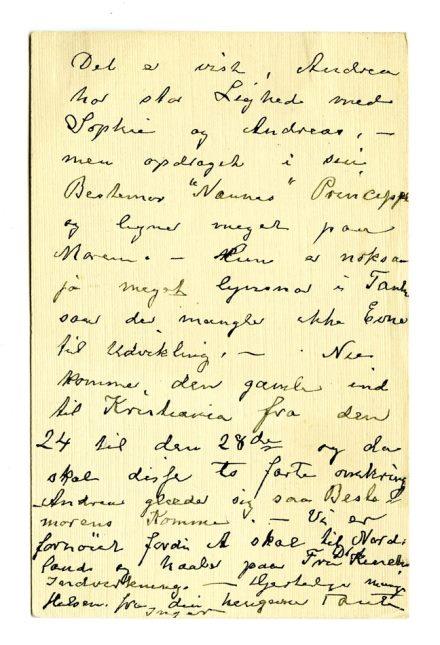 Det er vist, Andrea
har stor Lighed med
Sophie og Andreas, –
men opdraget i sin
Bestemor "Nannes" Princepper
og ligner meget paa
Moren. – Hun er noksaa
ja meget lynsnar i Tank
saa der mangler ikke Evne
til Udvikling. – Nu
kommer den gamle ind
til Kristiania fra den
24 til den 28de og da
skal disse to farte omkring
Andrea glæder sig saa Beste
morens Komme. – Vi er
fornøiet fordi A skal til Nord
lands og haaber paa Fru Dr
Indvirkning. – Hjertelige mange
Hilsen fra din hengivne Tante
Inger